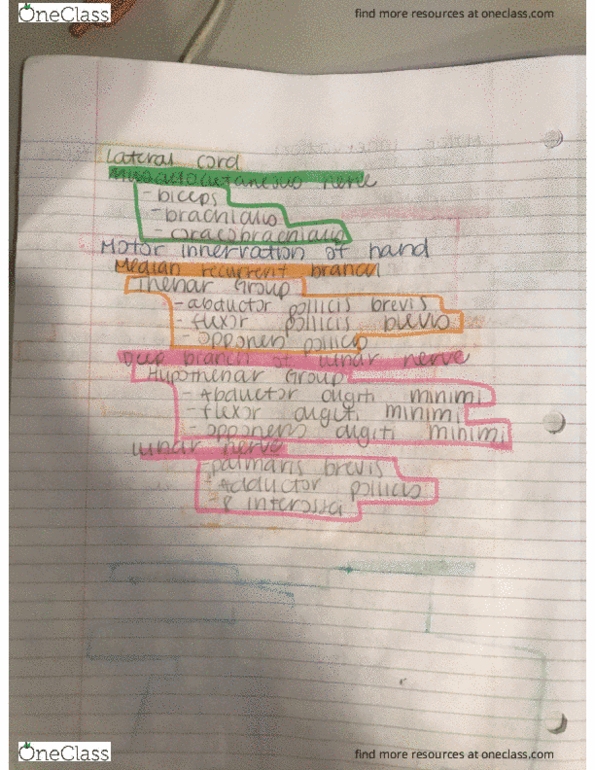 OneClass
find more resources at oneclass.com
Lateral cord
Musculocutaneous nerve
- biceps
- brachialis
- coracobrachialis
Motor innervation of hand
Median recurrent branch
Thenar Group
- abductor pollicis brevis
- flexor pollicis brevis
- opponen pollicis
Deep branch of ulnar nerve
Hypothenar Group
- Abductor digiti minimi
- flexor digiti minimi
- opponens digiti minimi
ulnar nerve
- palmaris brevis
- Adductor pollicis
& interossei
OneClass
find more resources at oneclass.com